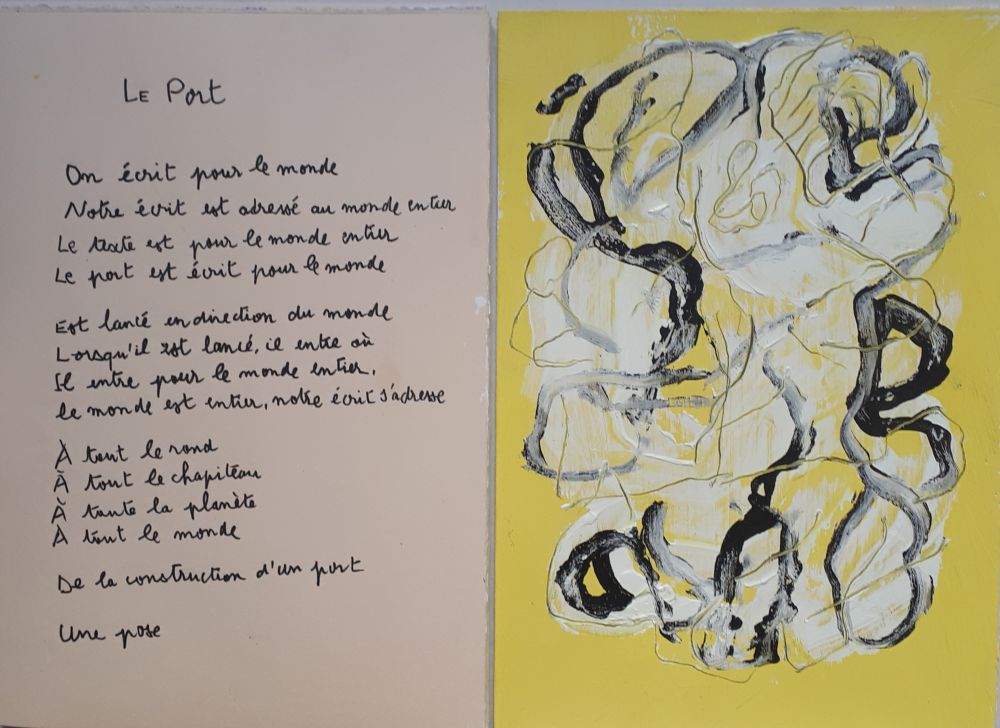 LE Port
On écrit pour le monde
Notre écrit est adressé au monde entier
Le texte est pour le monde entier
Le port est écrit pour le monde
Est lancé en direction du monde
Lorsqu'il est lancé, il entre où
Il entre pour le monde entier,
Le monde est entier, notre écrit s'adresse
À tout le rond
À tout le chapiteau
À toute la planète
À tout le monde
De la construction d'un port
Une pose